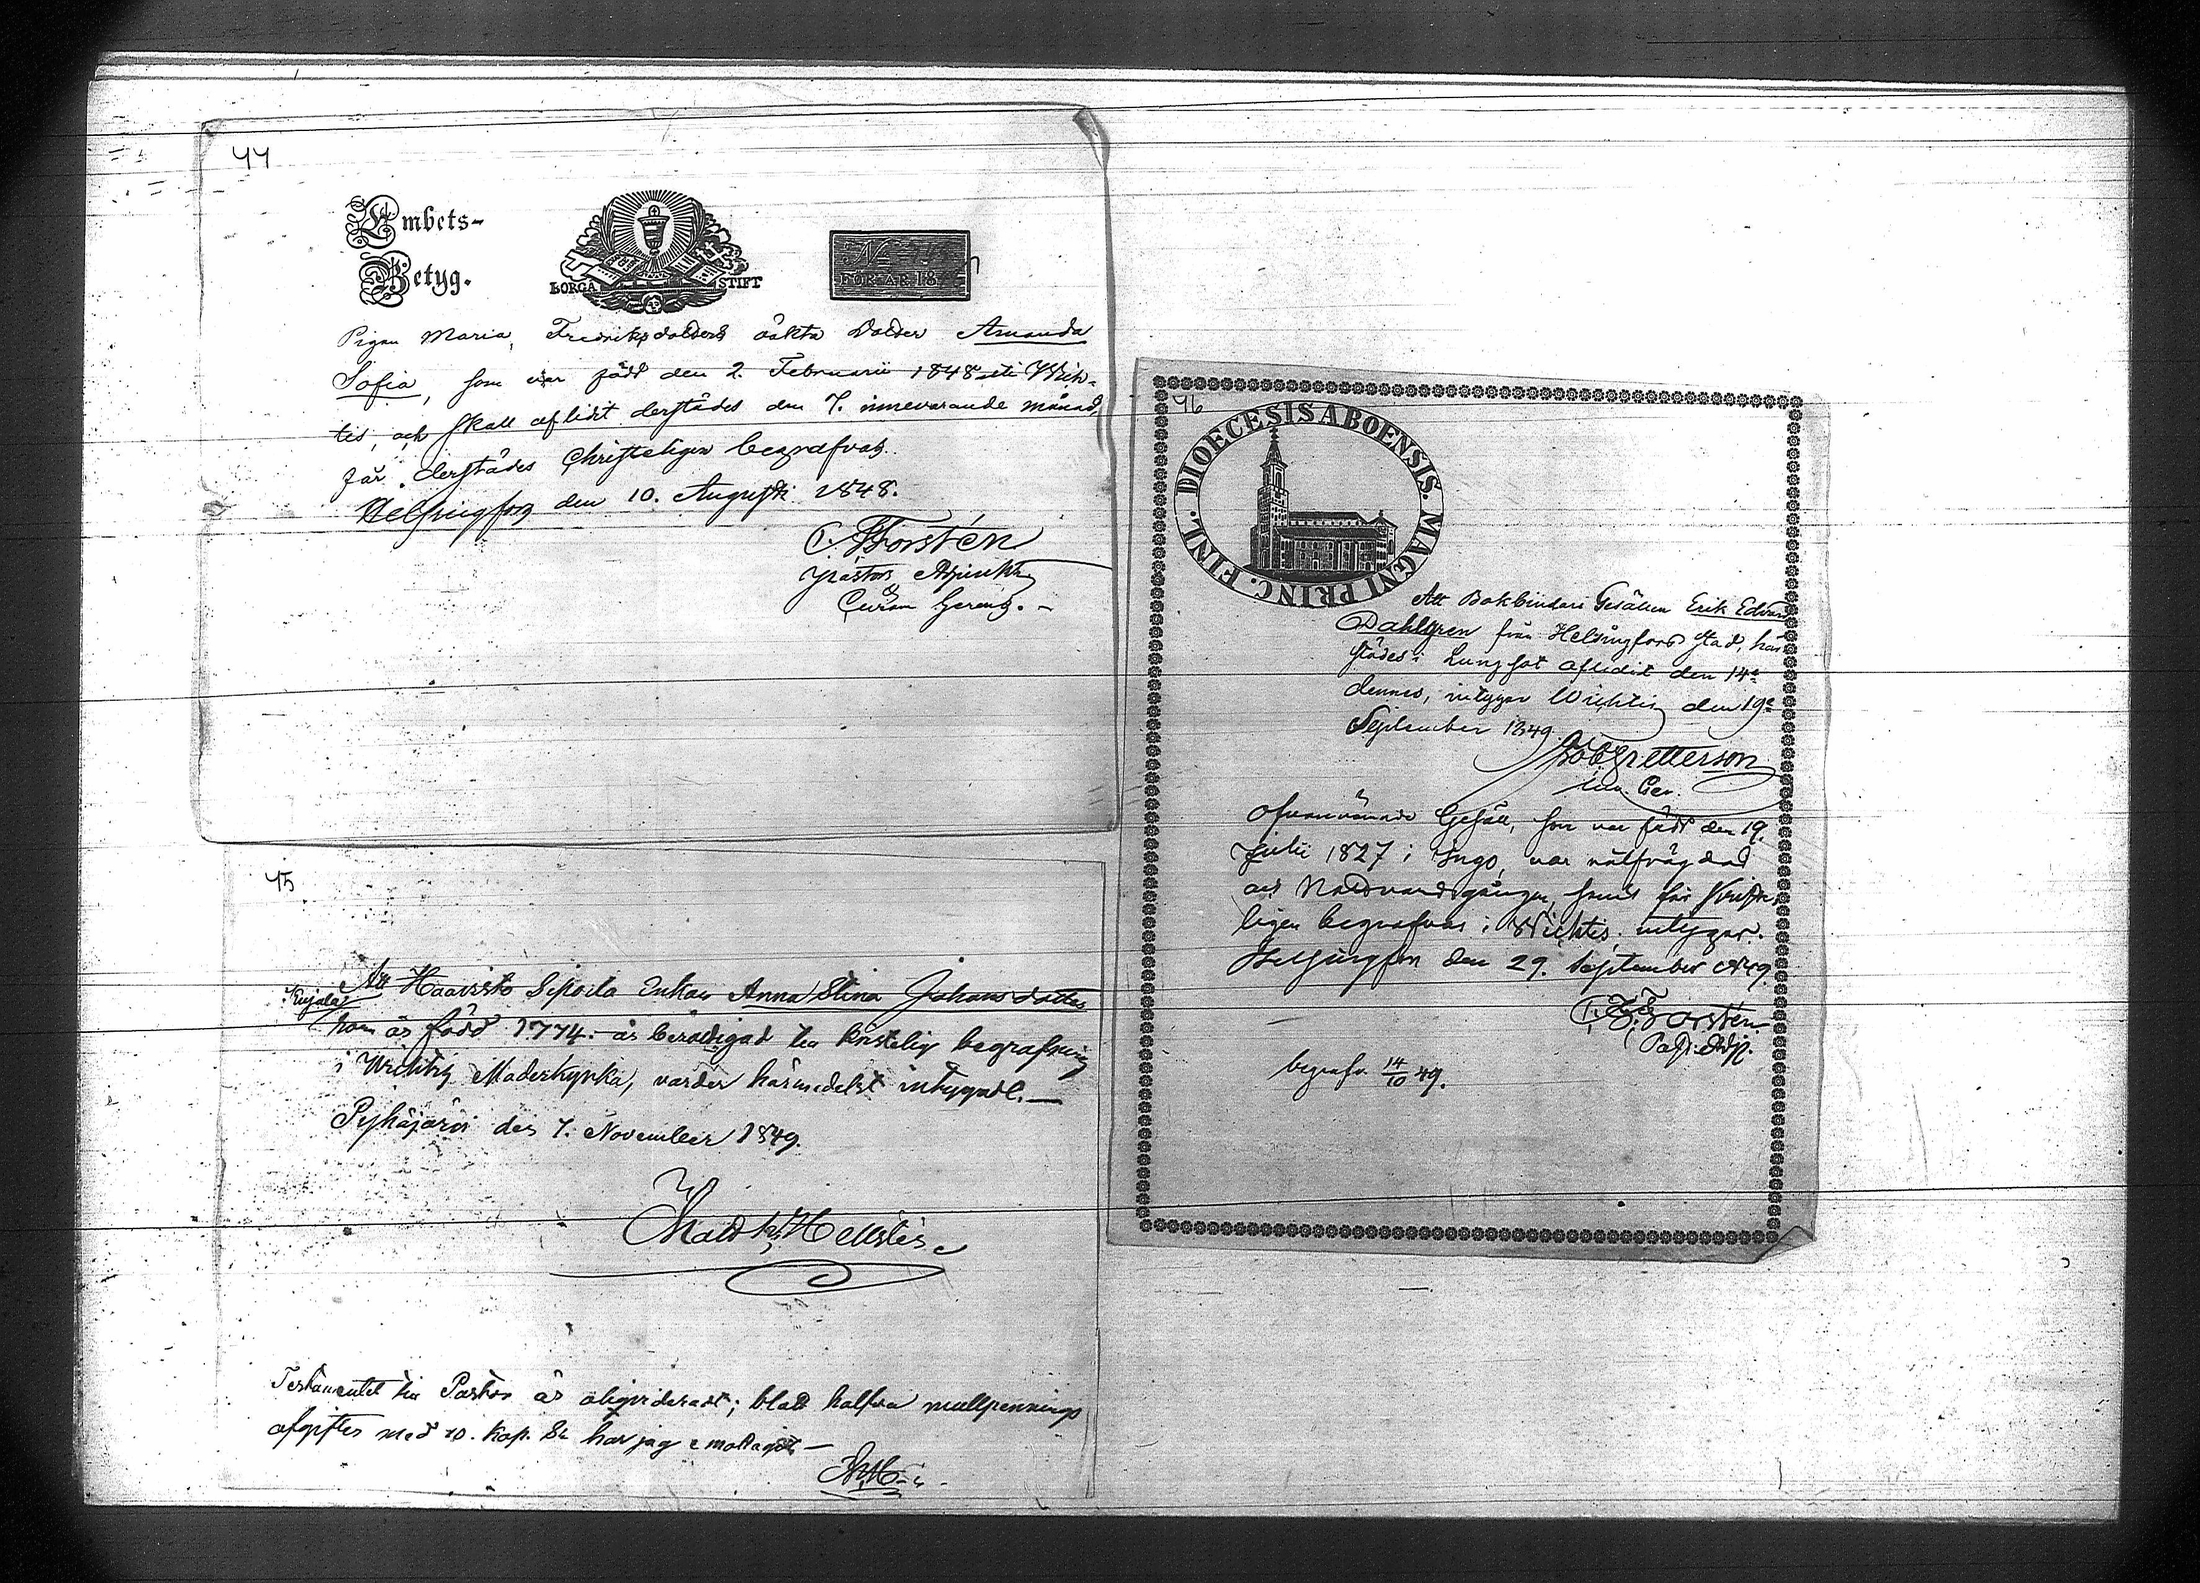 44
Embets-
Betyg.
BORGÅ STIFT
FÖR ÅR 18
Pigan Maria Fredriksdotters oäkta Dotter Amanda
Sofia, som var född den 2. Februarii 1848 uti Wich-
tis, och skall aflidit derstädes den 7. innevarande månad,
får derstädes Christeligen begrafvas.
Helsingfors den 10. Augusti 1848.
C. Forstén
Pastors Adjunkt
45
Att Haavisto Sipoila Enkan Anna Stina Johansdotter
Kujala
som är född 1774. är berättigad till kristelig begrafning
i Wichtis Moderkyrka, varder härmedelst intygadt.—
Pyhäjärvi den 7. November 1849.
Hellsté
Testamentet till Pastor är oliqvideradt; blott halfva mullpennings
afgiften med 10. kop. Sr har jag emottagit—
46
DIOECESIS ABOENSIS. MAGNI PRINC. FINL.
Att Bokbindari Gesällen Erik Edvard
Dahlgren från Helsingfors stad, här-
städes i Lungsot aflidit den 14de
dennes, intygar Wichtis den 19de
September 1849.
Petterson
ofvannämnde Gesäll, som var född den 19.
Julii 1827 i Ingo, var välfrägdad
och Nattvardsgången, samt får kriste-
ligen begrafvas i Wichtis, intygar.
Helsingfors den 29. September 1849.
C. Forstén
Past. Adj.
begrafv. 14/10 49.